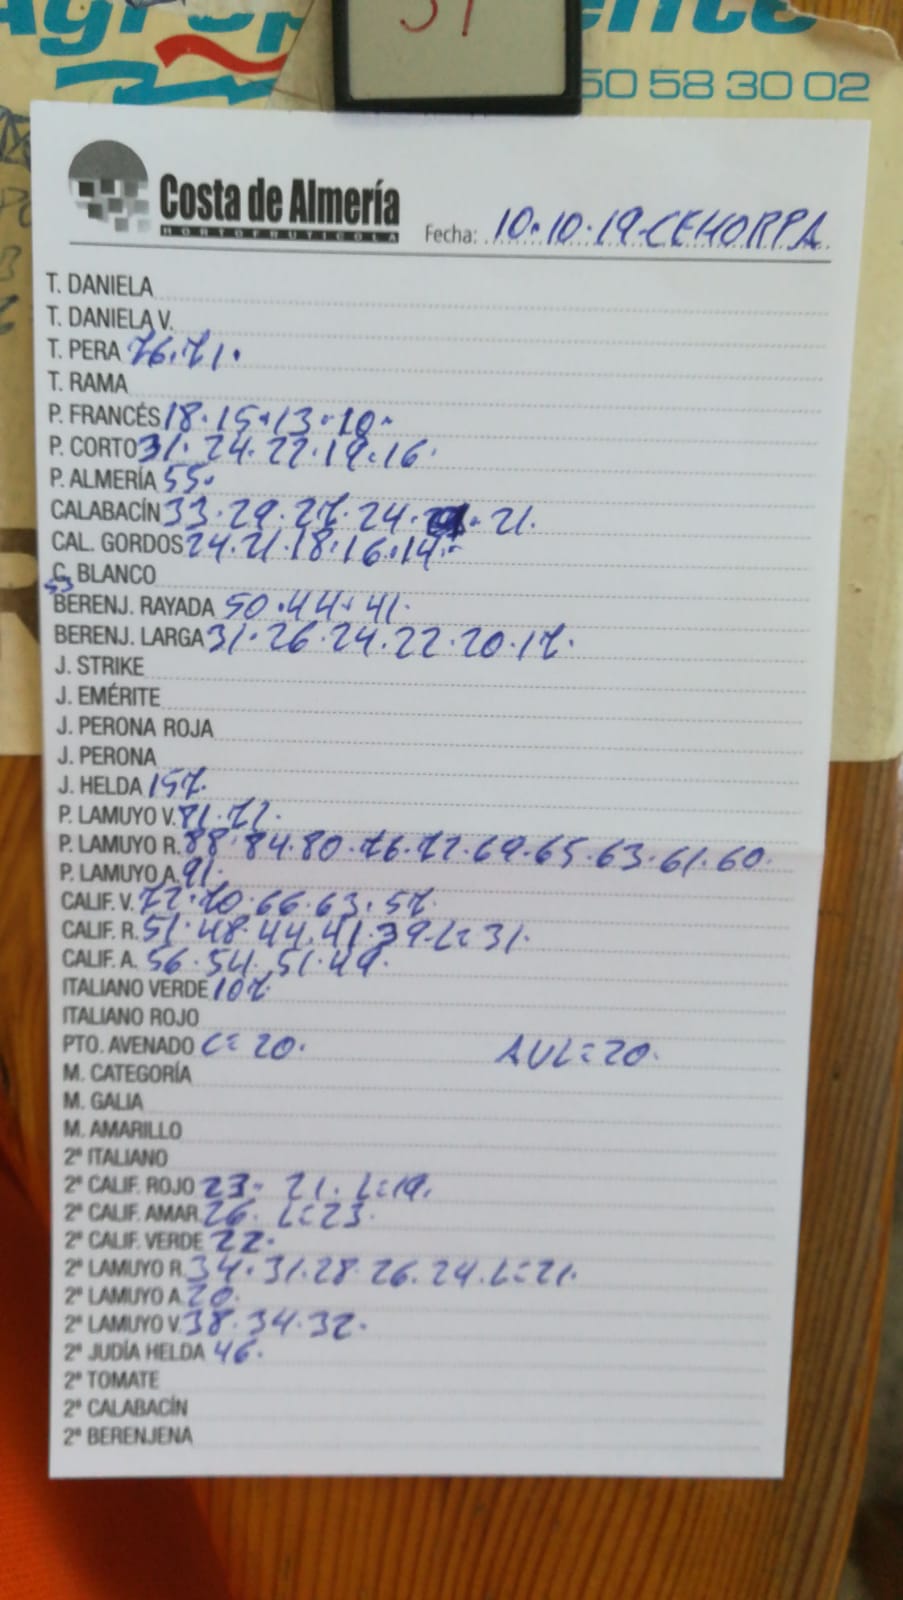 50 58 30 02
Costa de Almería
HORTOFRUTICOLA
Fecha: 10.10.19-CEHORPA
T. DANIELA
T. DANIELA V.
T. PERA 76.71.
T. RAMA
P. FRANCÉS 18.15.13.10-
P. CORTO 31.24.22.19.16.
P. ALMERÍA 55.
CALABACÍN 33.29.27.24. 21.
CAL. GORDOS 24.21.18.16.14.-
C. BLANCO
53
BERENJ. RAYADA 50.44.41.
BERENJ. LARGA 31.26.24.22.20.17.
J. STRIKE
J. EMÉRITE
J. PERONA ROJA
J. PERONA
J. HELDA 157.
P. LAMUYO V. 81.72.
P. LAMUYO R. 88.84.80.76.72.69.65.63.61.60.
P. LAMUYO A. 91.
CALIF. V. 72.70.66.63.57.
CALIF. R. 51.48.44.41.39-L=31.
CALIF. A. 56.54.51.49.
ITALIANO VERDE 107.
ITALIANO ROJO
PTO. AVENADO C=20. AUL=20.
M. CATEGORÍA
M. GALIA
M. AMARILLO
2ª ITALIANO
2ª CALIF. ROJO 23- 21. L=19.
2ª CALIF. AMAR 26. L=23.
2ª CALIF. VERDE 22.
2ª LAMUYO R. 34.31.28.26.24.L=21.
2ª LAMUYO A. 20.
2ª LAMUYO V. 38.34.32.
2ª JUDÍA HELDA 46.
2ª TOMATE
2ª CALABACÍN
2ª BERENJENA